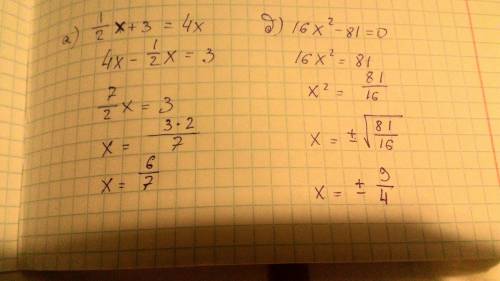 а) 1/2 x + 3 = 4x
4x - 1/2 x = 3
7/2 x = 3
x = 3·2/7
x = 6/7
д) 16x² - 81 = 0
16x² = 81
x² = 81/16
x = ±√(81/16)
x = ± 9/4